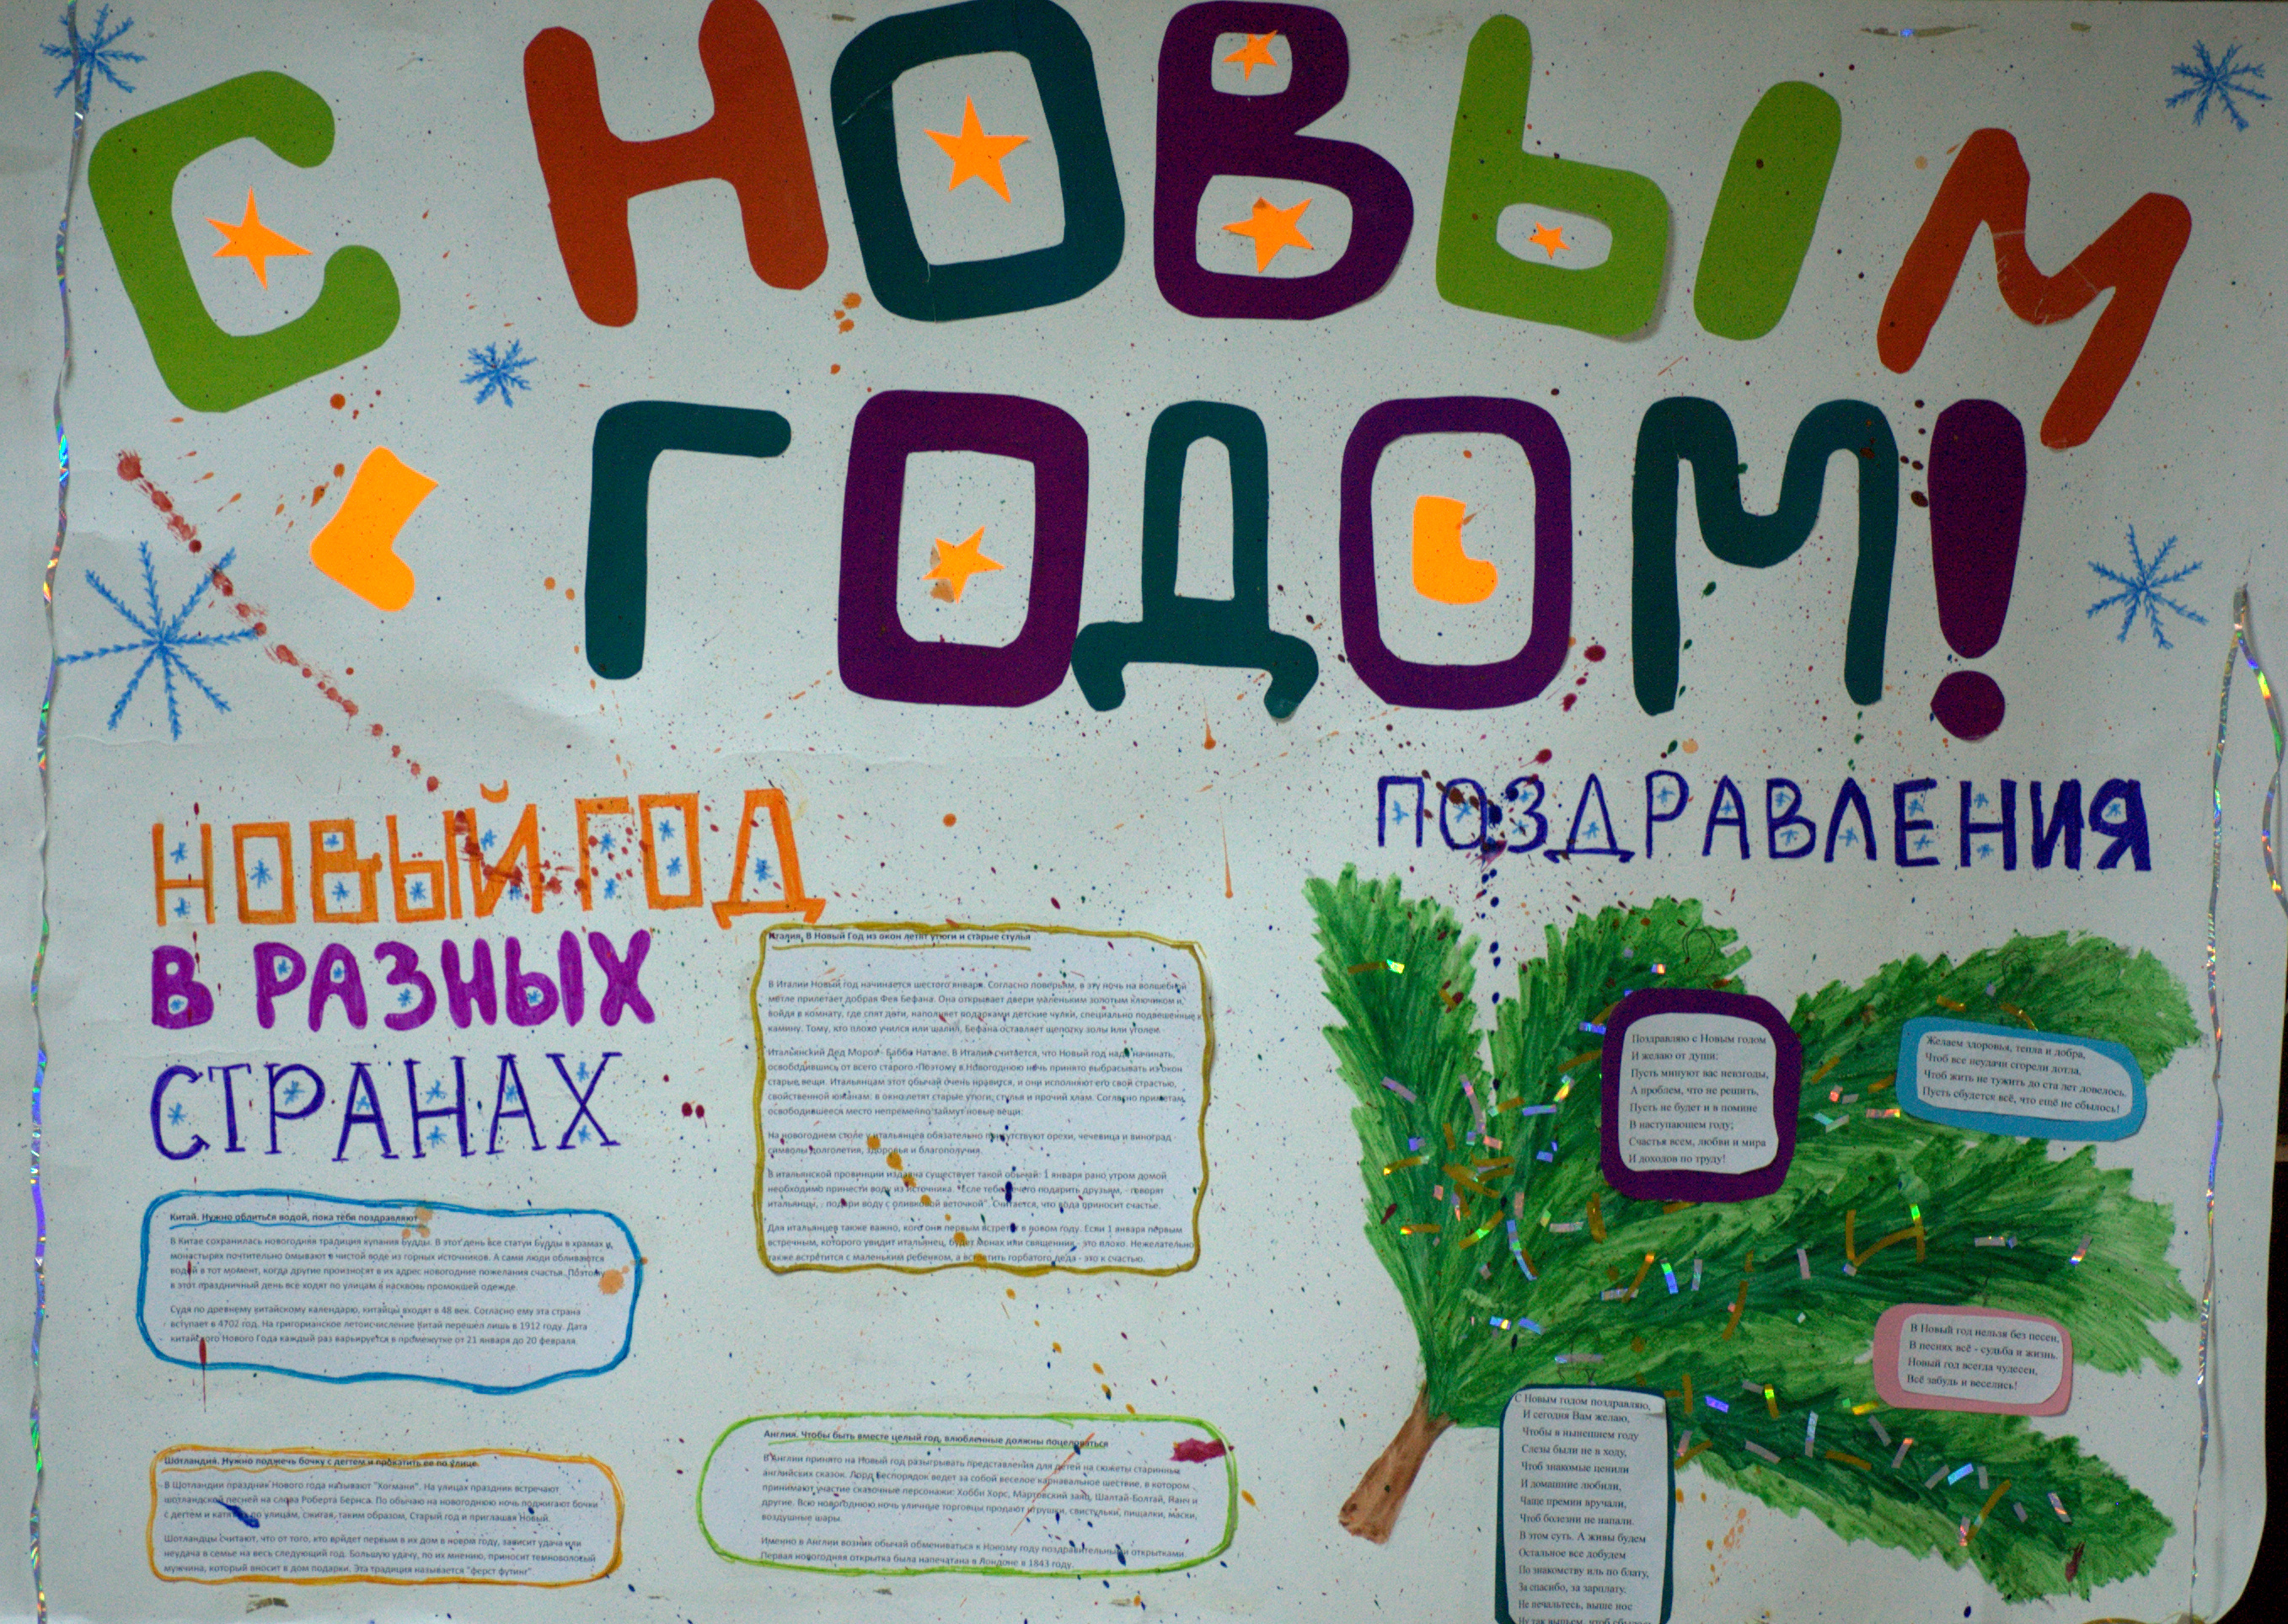 С НОВЫМ
ГОДОМ!
НОВЫЙ ГОД
В РАЗНЫХ
СТРАНАХ
Китай. Нужно облиться водой, пока тебя поздравляют
В Китае сохранилась новогодняя традиция купания Будды. В этот день все статуи Будды в храмах и
монастырях почтительно омывают в чистой воде из горных источников. А сами люди обливаются
водой в тот момент, когда другие произносят в их адрес новогодние пожелания счастья. Поэтому
в этот праздничный день все ходят по улицам в насквозь промокшей одежде.
Судя по древнему китайскому календарю, китайцы входят в 48 век. Согласно ему эта страна
вступает в 4702 год. На григорианское летоисчисление Китай перешел лишь в 1912 году. Дата
китайского Нового Года каждый раз варьируется в промежутке от 21 января до 20 февраля.
Шотландия. Нужно поджечь бочку с дегтем и прокатить ее по улице
В Шотландии праздник Нового года называют "Хогмани". На улицах праздник встречают
шотландской песней на слова Роберта Бернса. По обычаю на новогоднюю ночь поджигают бочки
с дегтем и катят их по улицам, сжигая, таким образом, Старый год и приглашая Новый.
Шотландцы считают, что от того, кто войдет первым в их дом в новом году, зависит удача или
неудача в семье на весь следующий год. Большую удачу, по их мнению, приносит темноволосый
мужчина, который вносит в дом подарки. Эта традиция называется "ферст футинг"
Италия. В Новый Год из окон летят утюги и старые стулья
В Италии Новый год начинается шестого января. Согласно поверьям, в эту ночь на волшебной
метле прилетает добрая Фея Бефана. Она открывает двери маленьким золотым ключиком и,
войдя в комнату, где спят дети, наполняет подарками детские чулки, специально подвешенные к
камину. Тому, кто плохо учился или шалил, Бефана оставляет щепотку золы или уголек.
Итальянский Дед Мороз - Баббо Натале. В Италии считается, что Новый год надо начинать,
освободившись от всего старого. Поэтому в Новогоднюю ночь принято выбрасывать из окон
старые вещи. Итальянцам этот обычай очень нравится, и они исполняют его свой страстью,
свойственной южанам: в окно летят старые утюги, стулья и прочий хлам. Согласно приметам,
освободившееся место непременно займут новые вещи.
На новогоднем столе у итальянцев обязательно присутствуют орехи, чечевица и виноград -
символы долголетия, здоровья и благополучия.
В итальянской провинции издавна существует такой обычай: 1 января рано утром домой
необходимо принести воду из источника. "Если тебе нечего подарить друзьям, - говорят
итальянцы, - подари воду с оливковой веточкой". Считается, что вода приносит счастье.
Для итальянцев также важно, кого они первым встретят в новом году. Если 1 января первым
встречным, которого увидит итальянец, будет монах или священник - это плохо. Нежелательно
также встретится с маленьким ребенком, а встретить горбатого деда - это к счастью.
Англия. Чтобы быть вместе целый год, влюбленные должны поцеловаться
В Англии принято на Новый год разыгрывать представления для детей на сюжеты старинных
английских сказок. Лорд Беспорядок ведет за собой веселое карнавальное шествие, в котором
принимают участие сказочные персонажи: Хобби Хорс, Мартовский заяц, Шалтай-Болтай, Панч и
другие. Всю новогоднюю ночь уличные торговцы продают игрушки, свистульки, пищалки, маски,
воздушные шары.
Именно в Англии возник обычай обмениваться к Новому году поздравительными открытками.
Первая новогодняя открытка была напечатана в Лондоне в 1843 году.
ПОЗДРАВЛЕНИЯ
Поздравляю с Новым годом
И желаю от души:
Пусть минуют вас невзгоды,
А проблем, что не решить,
Пусть не будет и в помине
В наступающем году;
Счастья всем, любви и мира
И доходов по труду!
Желаем здоровья, тепла и добра,
Чтоб все неудачи сгорели дотла,
Чтоб жить не тужить до ста лет довелось.
Пусть сбудется всё, что ещё не сбылось!
В Новый год нельзя без песен,
В песнях всё - судьба и жизнь.
Новый год всегда чудесен,
Всё забудь и веселись!
С Новым годом поздравляю,
И сегодня Вам желаю,
Чтобы в нынешнем году
Слезы были не в ходу,
Чтоб знакомые ценили
И домашние любили,
Чаще премии вручали,
Чтоб болезни не напали.
В этом суть. А живы будем
Остальное все добудем
По знакомству иль по блату,
За спасибо, за зарплату.
Не печальтесь, выше нос